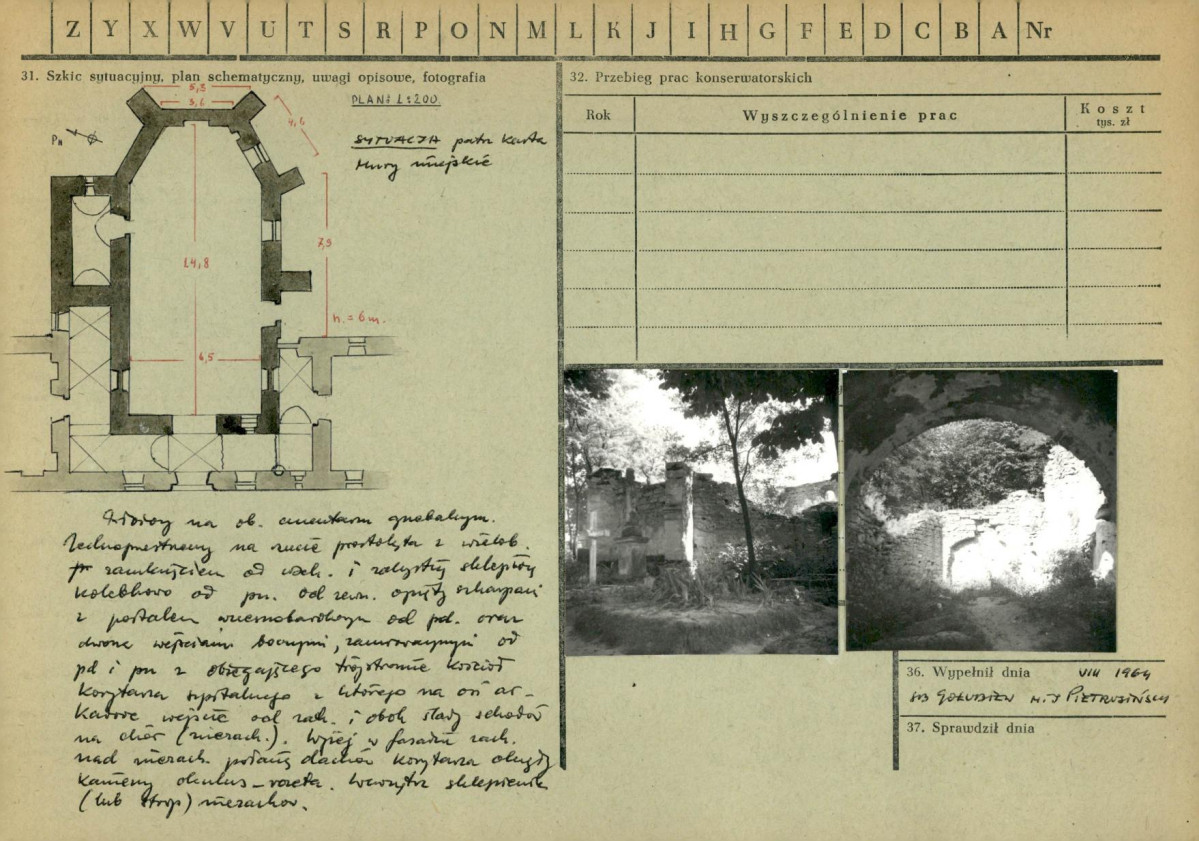 Z Y X W V U T S R P O N M L K J I H G F E D C B A Nr
31. Szkic sytuacyjny, plan schematyczny, uwagi opisowe, fotografia
PLAN 1:200.
SYTUACJA patrz karta
Mury miejskie
5,3
3,6
4,6
PN
14,8
7,9
h. = 6 m.
6,5
na ob. cmentarzu grzebalnym.
Jednoprzestrzenny na rzucie prostokąta z wielob.
zamknięciem od wsch. i zakrystią sklepioną
kolebkowo od pn. Od zewn. opięty szkarpami
z portalem wczesnobarokowym od pd. oraz
dwoma wejściami bocznymi, zamurowanymi od
pd i pn z obiegającego trójstronnie kościół
korytarza szpitalnego z którego na osi ar-
kadowe wejście od zach. i obok ślady schodów
na chór (niezach.). Wyżej w fasadzie zach.
nad niezach. połacią dachów korytarza okrągły
kamienny okulus - rozeta. Wewnątrz sklepienie
(lub strop) niezachow.
32. Przebieg prac konserwatorskich
Rok
Wyszczególnienie prac
Koszt
tys. zł
36. Wypełnił dnia VIII 1964
GOŁUBIEW M. I J PIETRUSIŃSCY
37. Sprawdził dnia